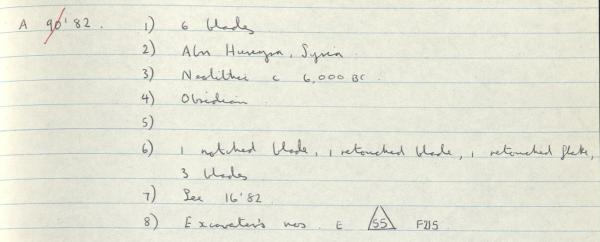 A 90'82. 1) 6 blades
2) Abu Hureyra, Syria
3) Neolithic c 6,000 BC.
4) Obsidian
5)
6) 1 notched blade, 1 retouched blade, 1 retouched flake,
3 blades
7) See 16'82
8) Excavator's nos. E 55 F215